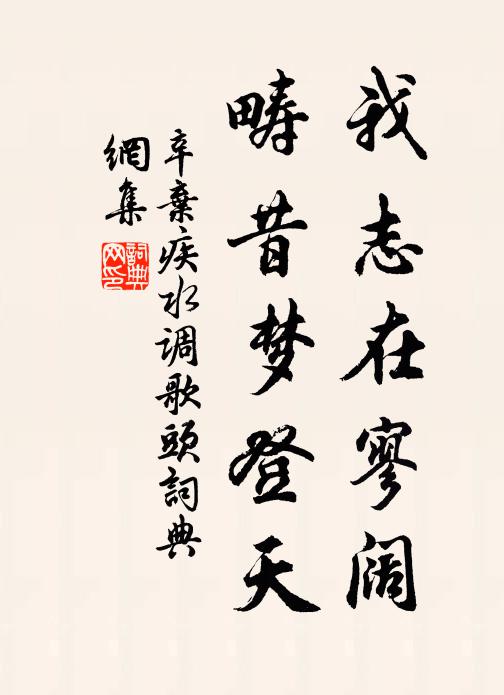 我志在寥阔
畴昔梦登天
辛棄疾水调歌頭詞典
網集
詞典网印